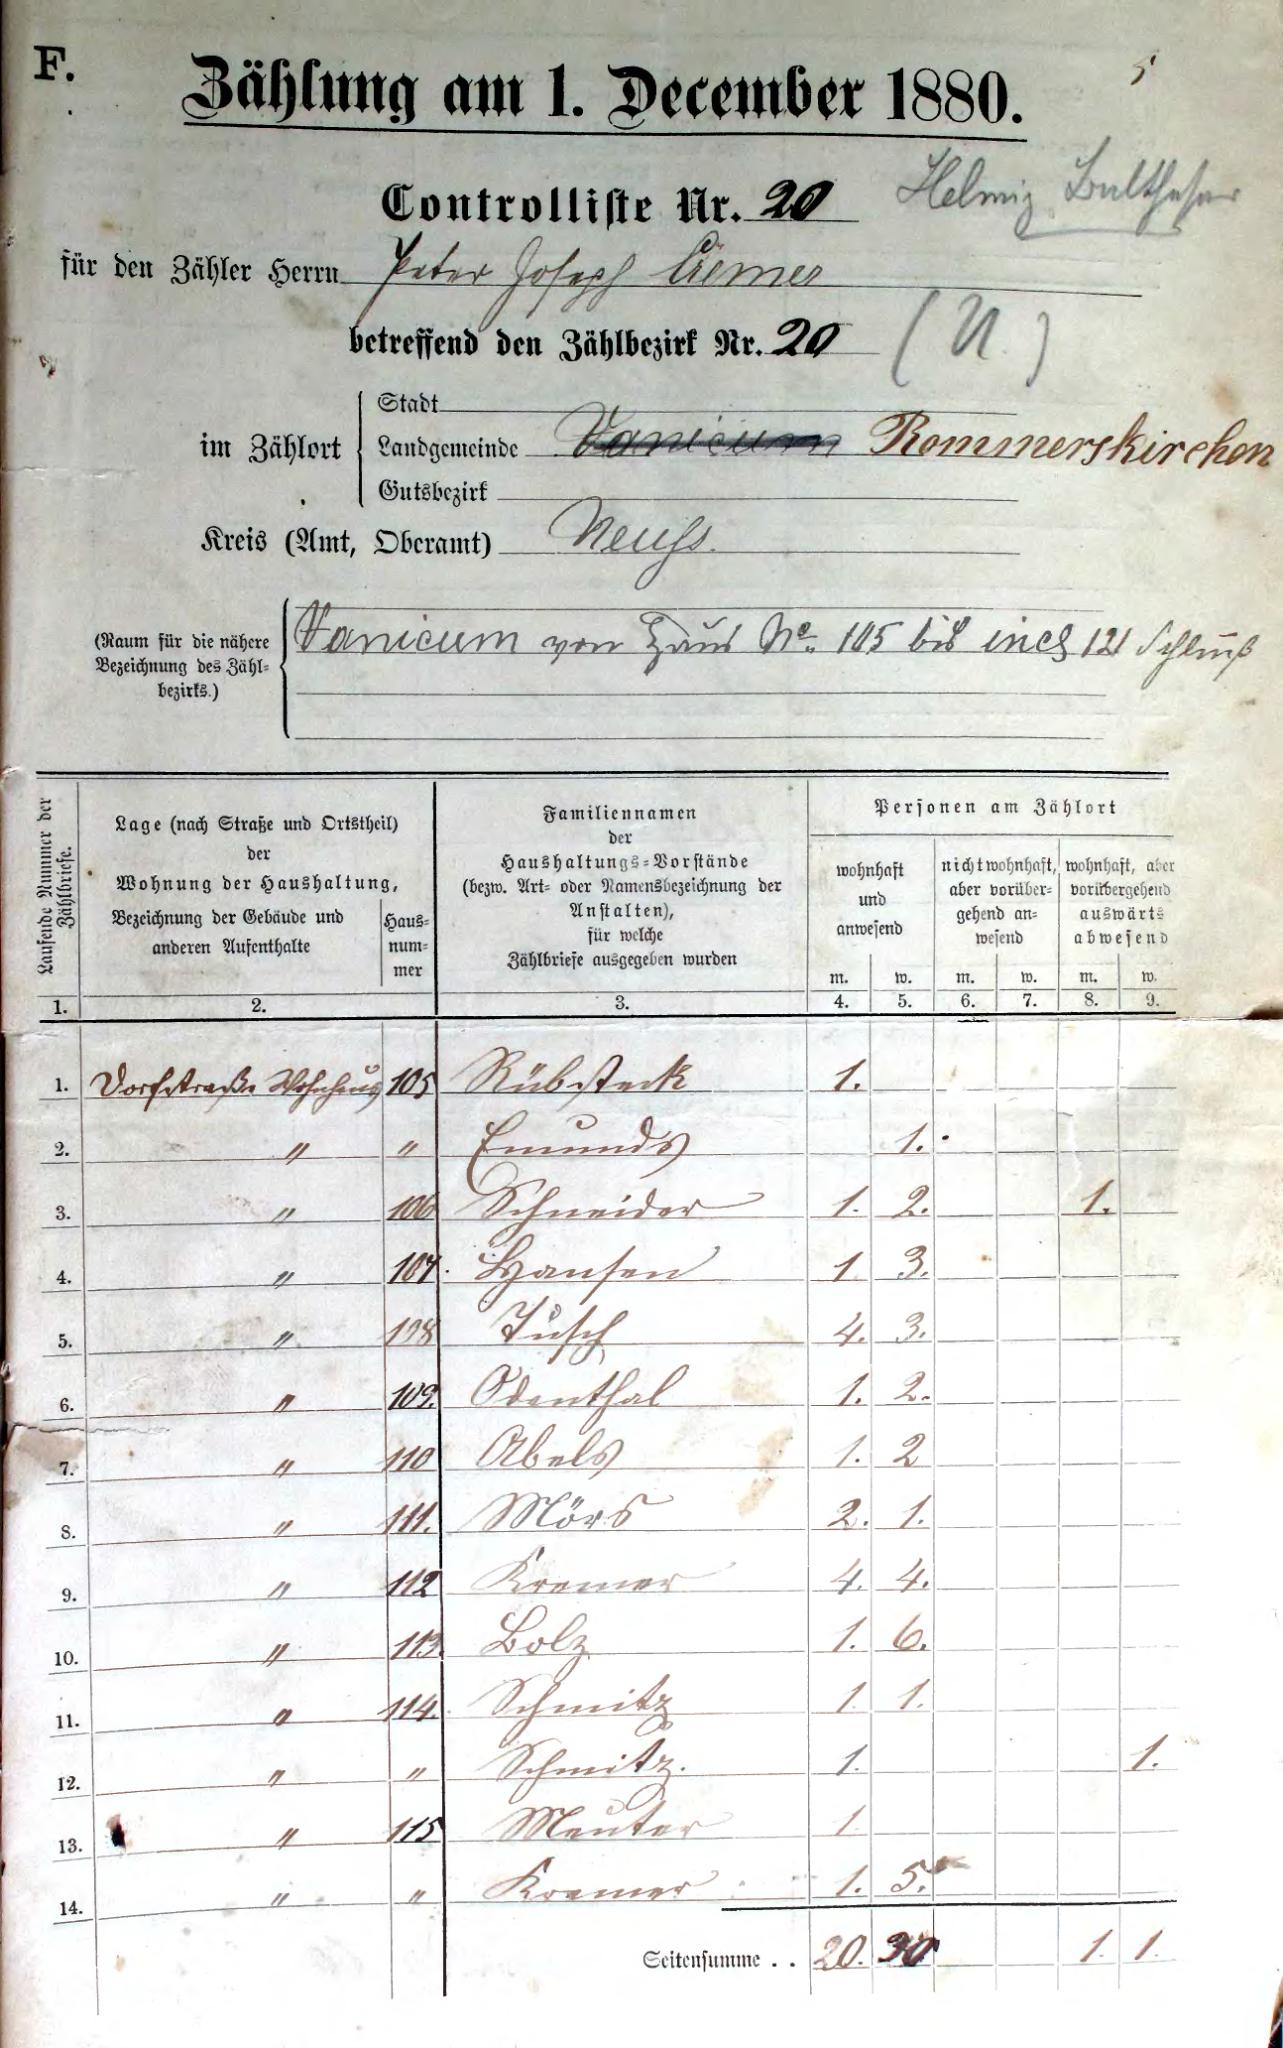 F.
5
Zählung am 1. December 1880.
Controlliste Nr. 20
für den Zähler Herrn Peter Joseph
betreffend den Zählbezirk Nr. 20 (N.)
im Zählort
Stadt
Landgemeinde Vanicum Rommerskirchen
Gutsbezirk
Kreis (Amt, Oberamt) Neuss.
(Raum für die nähere Bezeichnung des Zähl-
bezirks.)
Vanicum von Haus No. 105 bis incl 121 Schluß
Laufende Nummer der Zählbriefe.
Lage (nach Straße und Ortstheil)
der
Wohnung der Haushaltung,
Bezeichnung der Gebäude und
anderen Aufenthalte
Haus-
num-
mer
Familiennamen
der
Haushaltungs-Vorstände
(bezw. Art- oder Namensbezeichnung der
Anstalten),
für welche
Zählbriefe ausgegeben wurden
Personen am Zählort
wohnhaft
und
anwesend
nicht wohnhaft,
aber vorüber-
gehend an-
wesend
wohnhaft, aber
vorübergehend
auswärts
abwesend
m. w. m. w. m. w.
1. 2. 3. 4. 5. 6. 7. 8. 9.
1. Dorfstraße Wohnhaus 105 Rübsteck 1.
2. " " Emunds 1.
3. " 106 Schneider 1. 2. 1.
4. " 107. Hansen 1 3.
5. " 108 Tusch 4. 3.
6. " 109. Odenthal 1. 2.
7. " 110 Abels 1. 2
8. " 111. Mörs 2. 1.
9. " 112 Kremer 4. 4.
10. " 113. Bolz 1. 6.
11. " 114. Schmitz 1. 1.
12. " " Schmitz. 1. 1.
13. " 115 Meuter 1.
14. " " Kremer 1. 5.
Seitensumme . . 20. 30 1. 1.